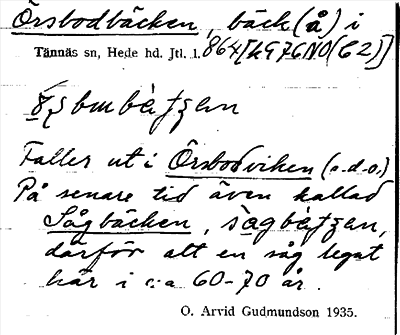 Örsbodbäcken, bäck (å) i
Tännäs sn, Hede hd. Jtl. l. 864
Faller ut i Örsbodviken (s.d.o.)
På senare tid även kallad
Sågbäcken,
därför att en såg legat
här i c:a 60-70 år.
O. Arvid Gudmundson 1935.